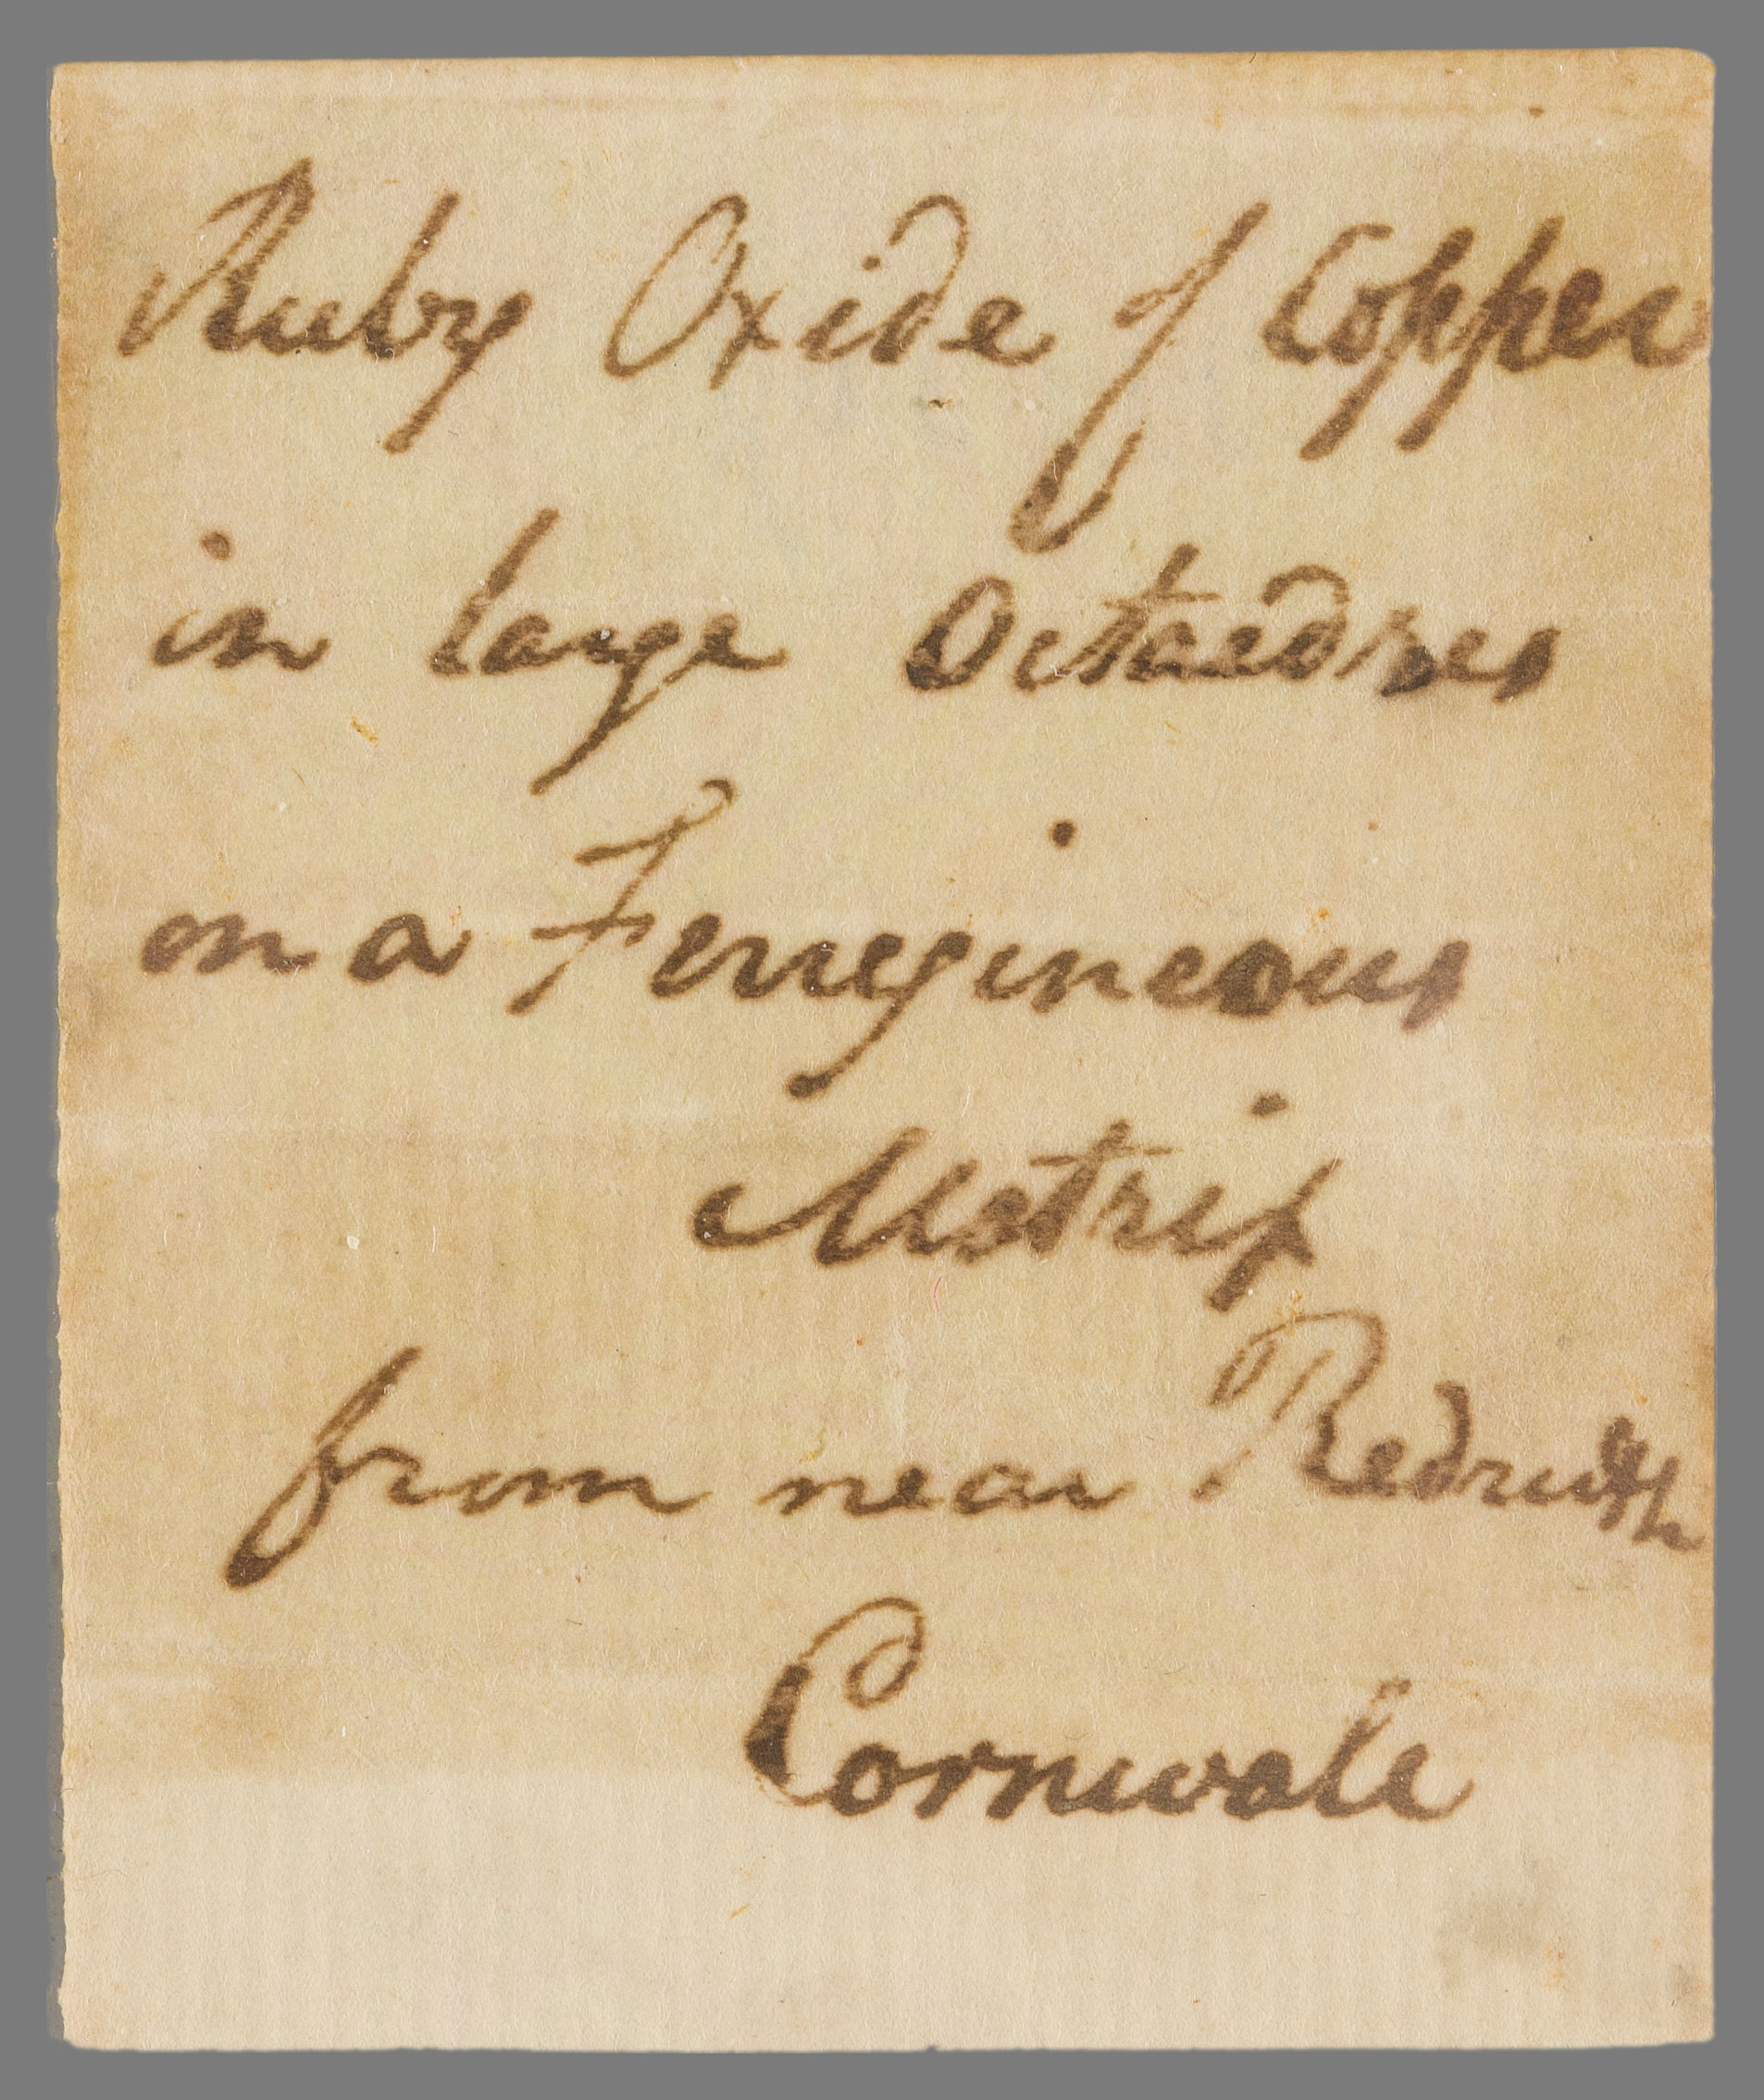 Ruby Oxide of Copper
in large Octaedres
on a Ferrugineous
Matrix
from near Redruth
Cornwall